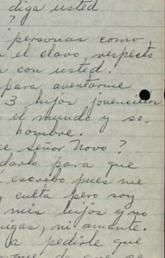 diga usted
?
personas como
el clavo, respecto
a con usted.
para aventarme
3 hijos
el mundo y se
hombre.
e señor Novo?
darlo para que
escribo pues me
culta pero soy
mis hijos y no
migas, ni amante.
a pedirle que